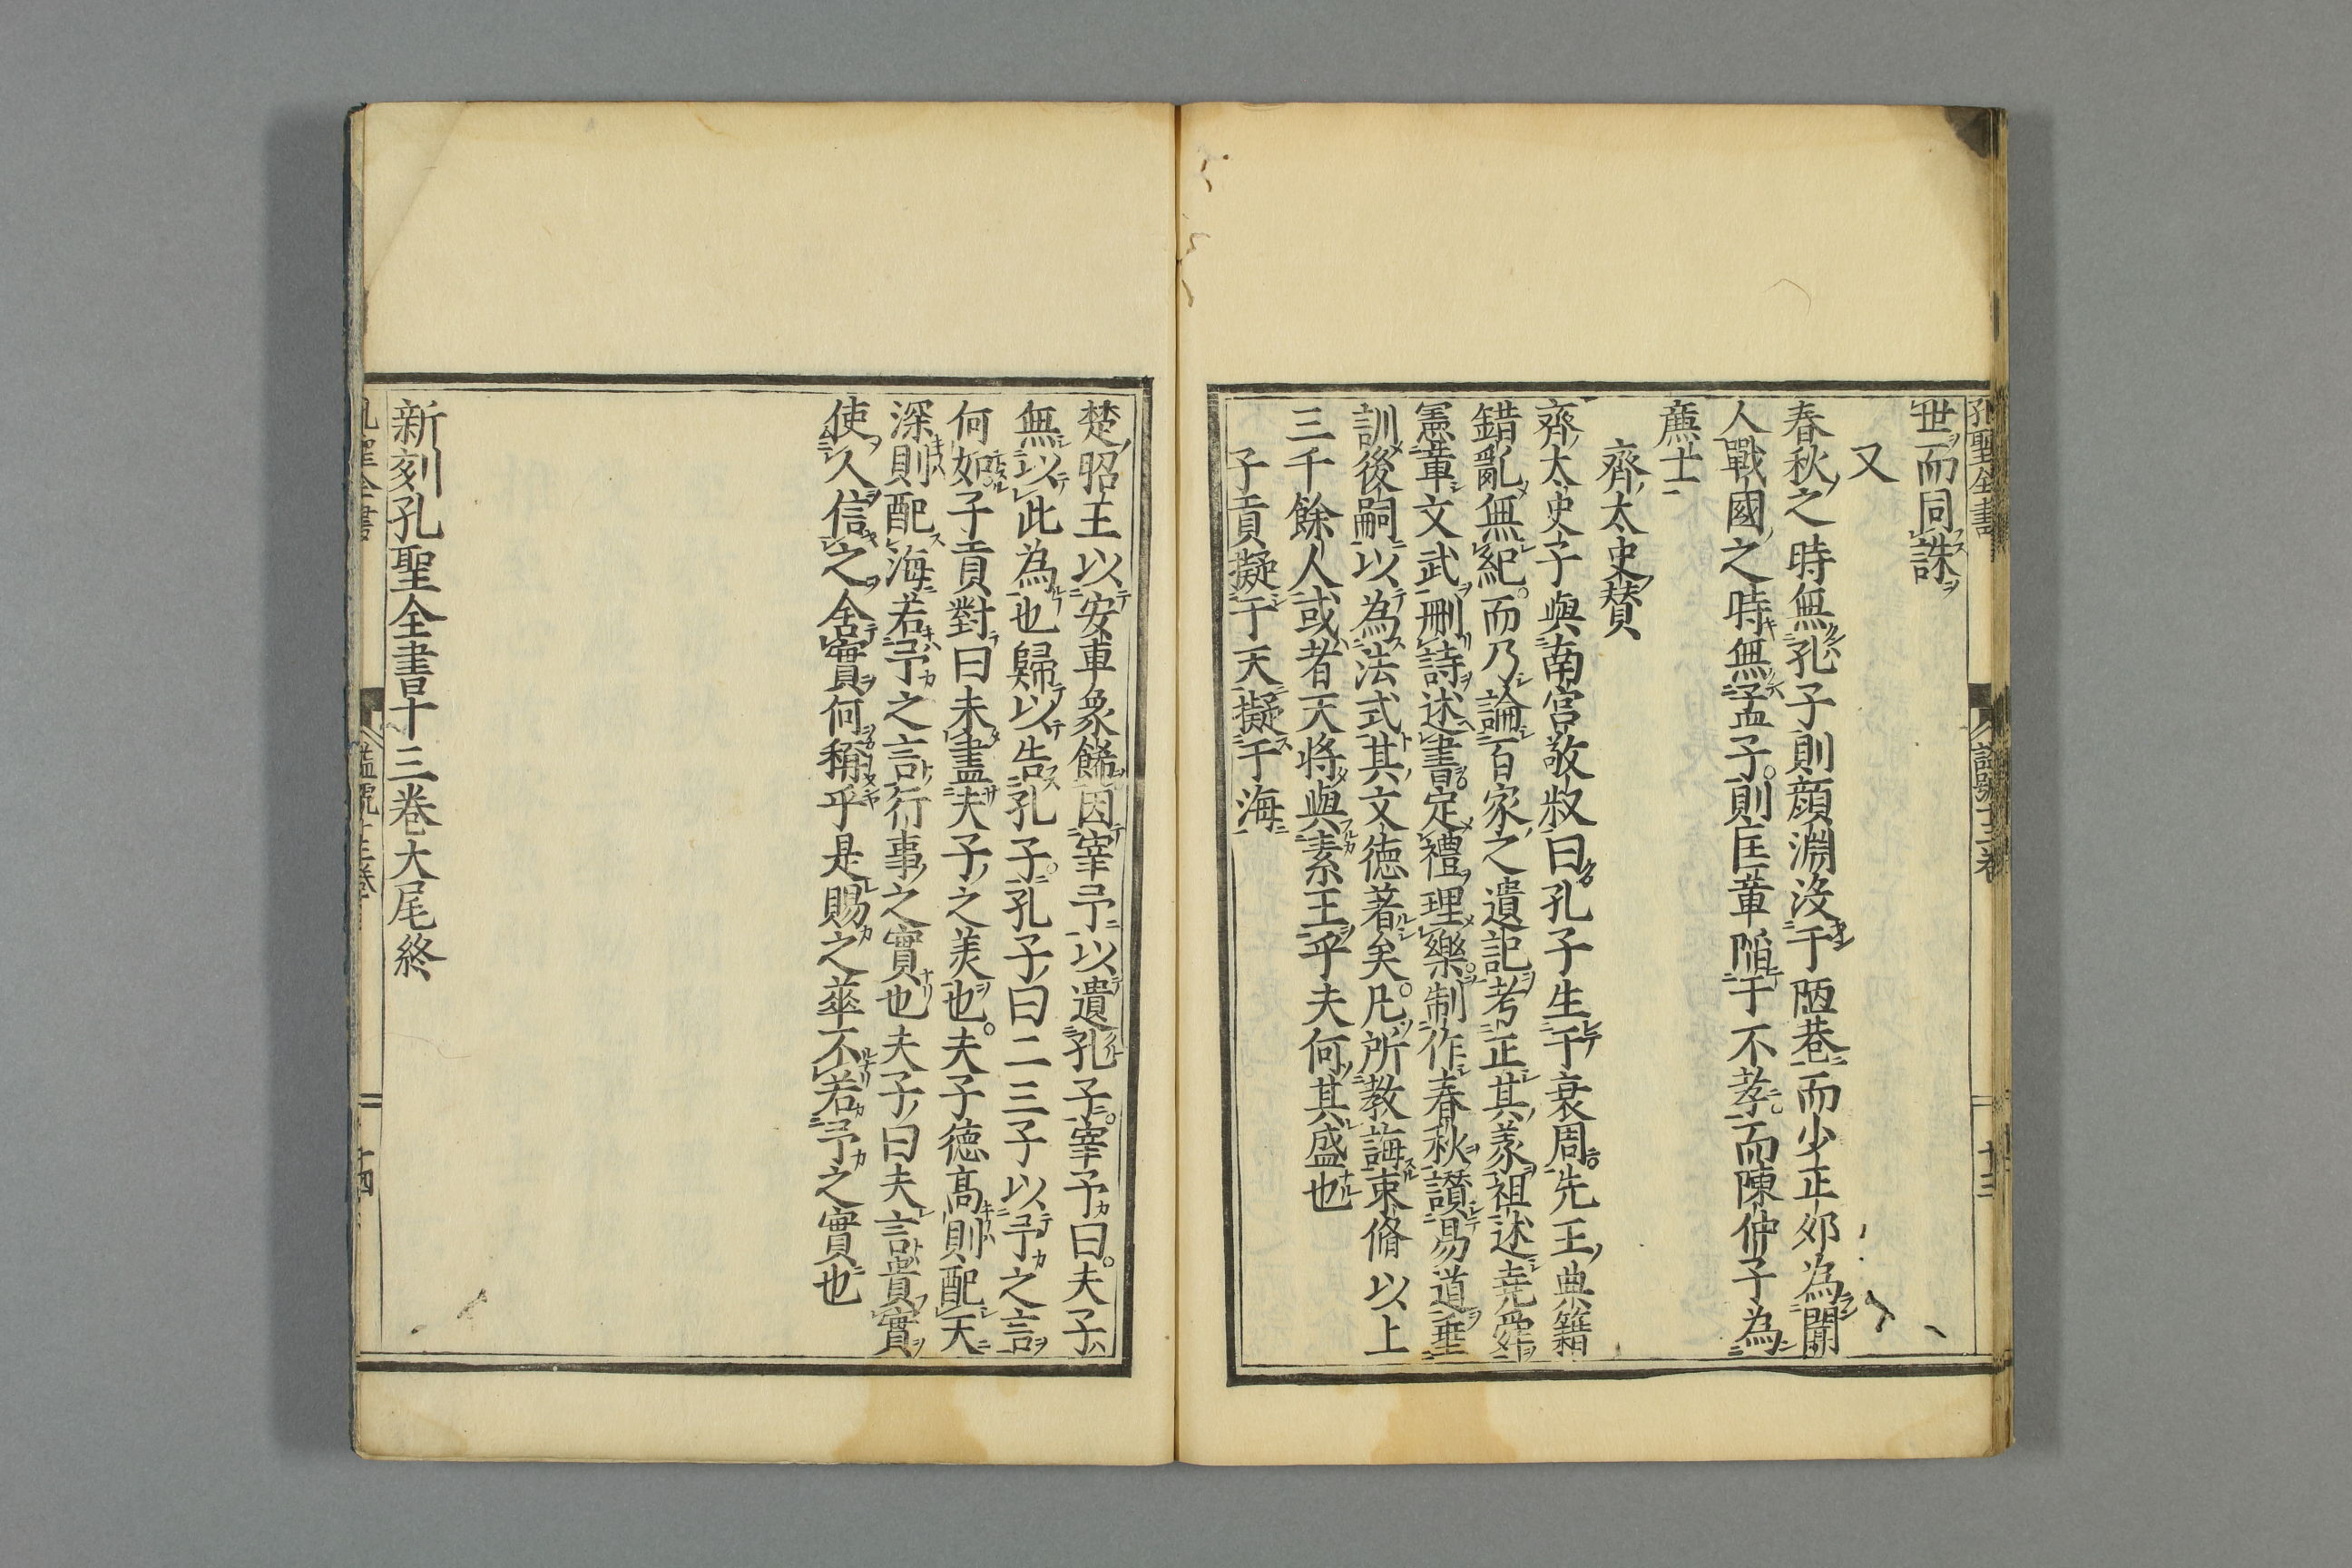 孔聖全書 諡號十三卷 十三
世而同誅
又
春秋之時無孔子則顔淵没于陋巷而少正夘為聞
人戰國之時無孟子則匡章陷于不孝而陳仲子為
廉士
齊太史賛
齊太史子與南宮敬叔曰孔子生于衰周先王典籍
錯亂無紀而乃論百家之遺記考正其義祖述堯舜
憲章文武刪詩述書定禮理樂制作春秋讃易道垂
訓後嗣以為法式其文徳著矣凡所教誨束脩以上
三千餘人或者天將與素王乎夫何其盛也
子貢擬于天擬于海
楚昭王以安車象餙因宰予以遺孔子宰予曰夫子
無以此為也歸以告孔子孔子曰二三子以予之言
何如子貢對曰未盡夫子之美也夫子德高則配天
深則配海若予之言行事之實也夫子曰夫言貴實
使人信之舍實何稱乎是賜之華不若予之實也
新刻孔聖全書十三卷大尾終
孔聖全書 諡號十三卷 十四